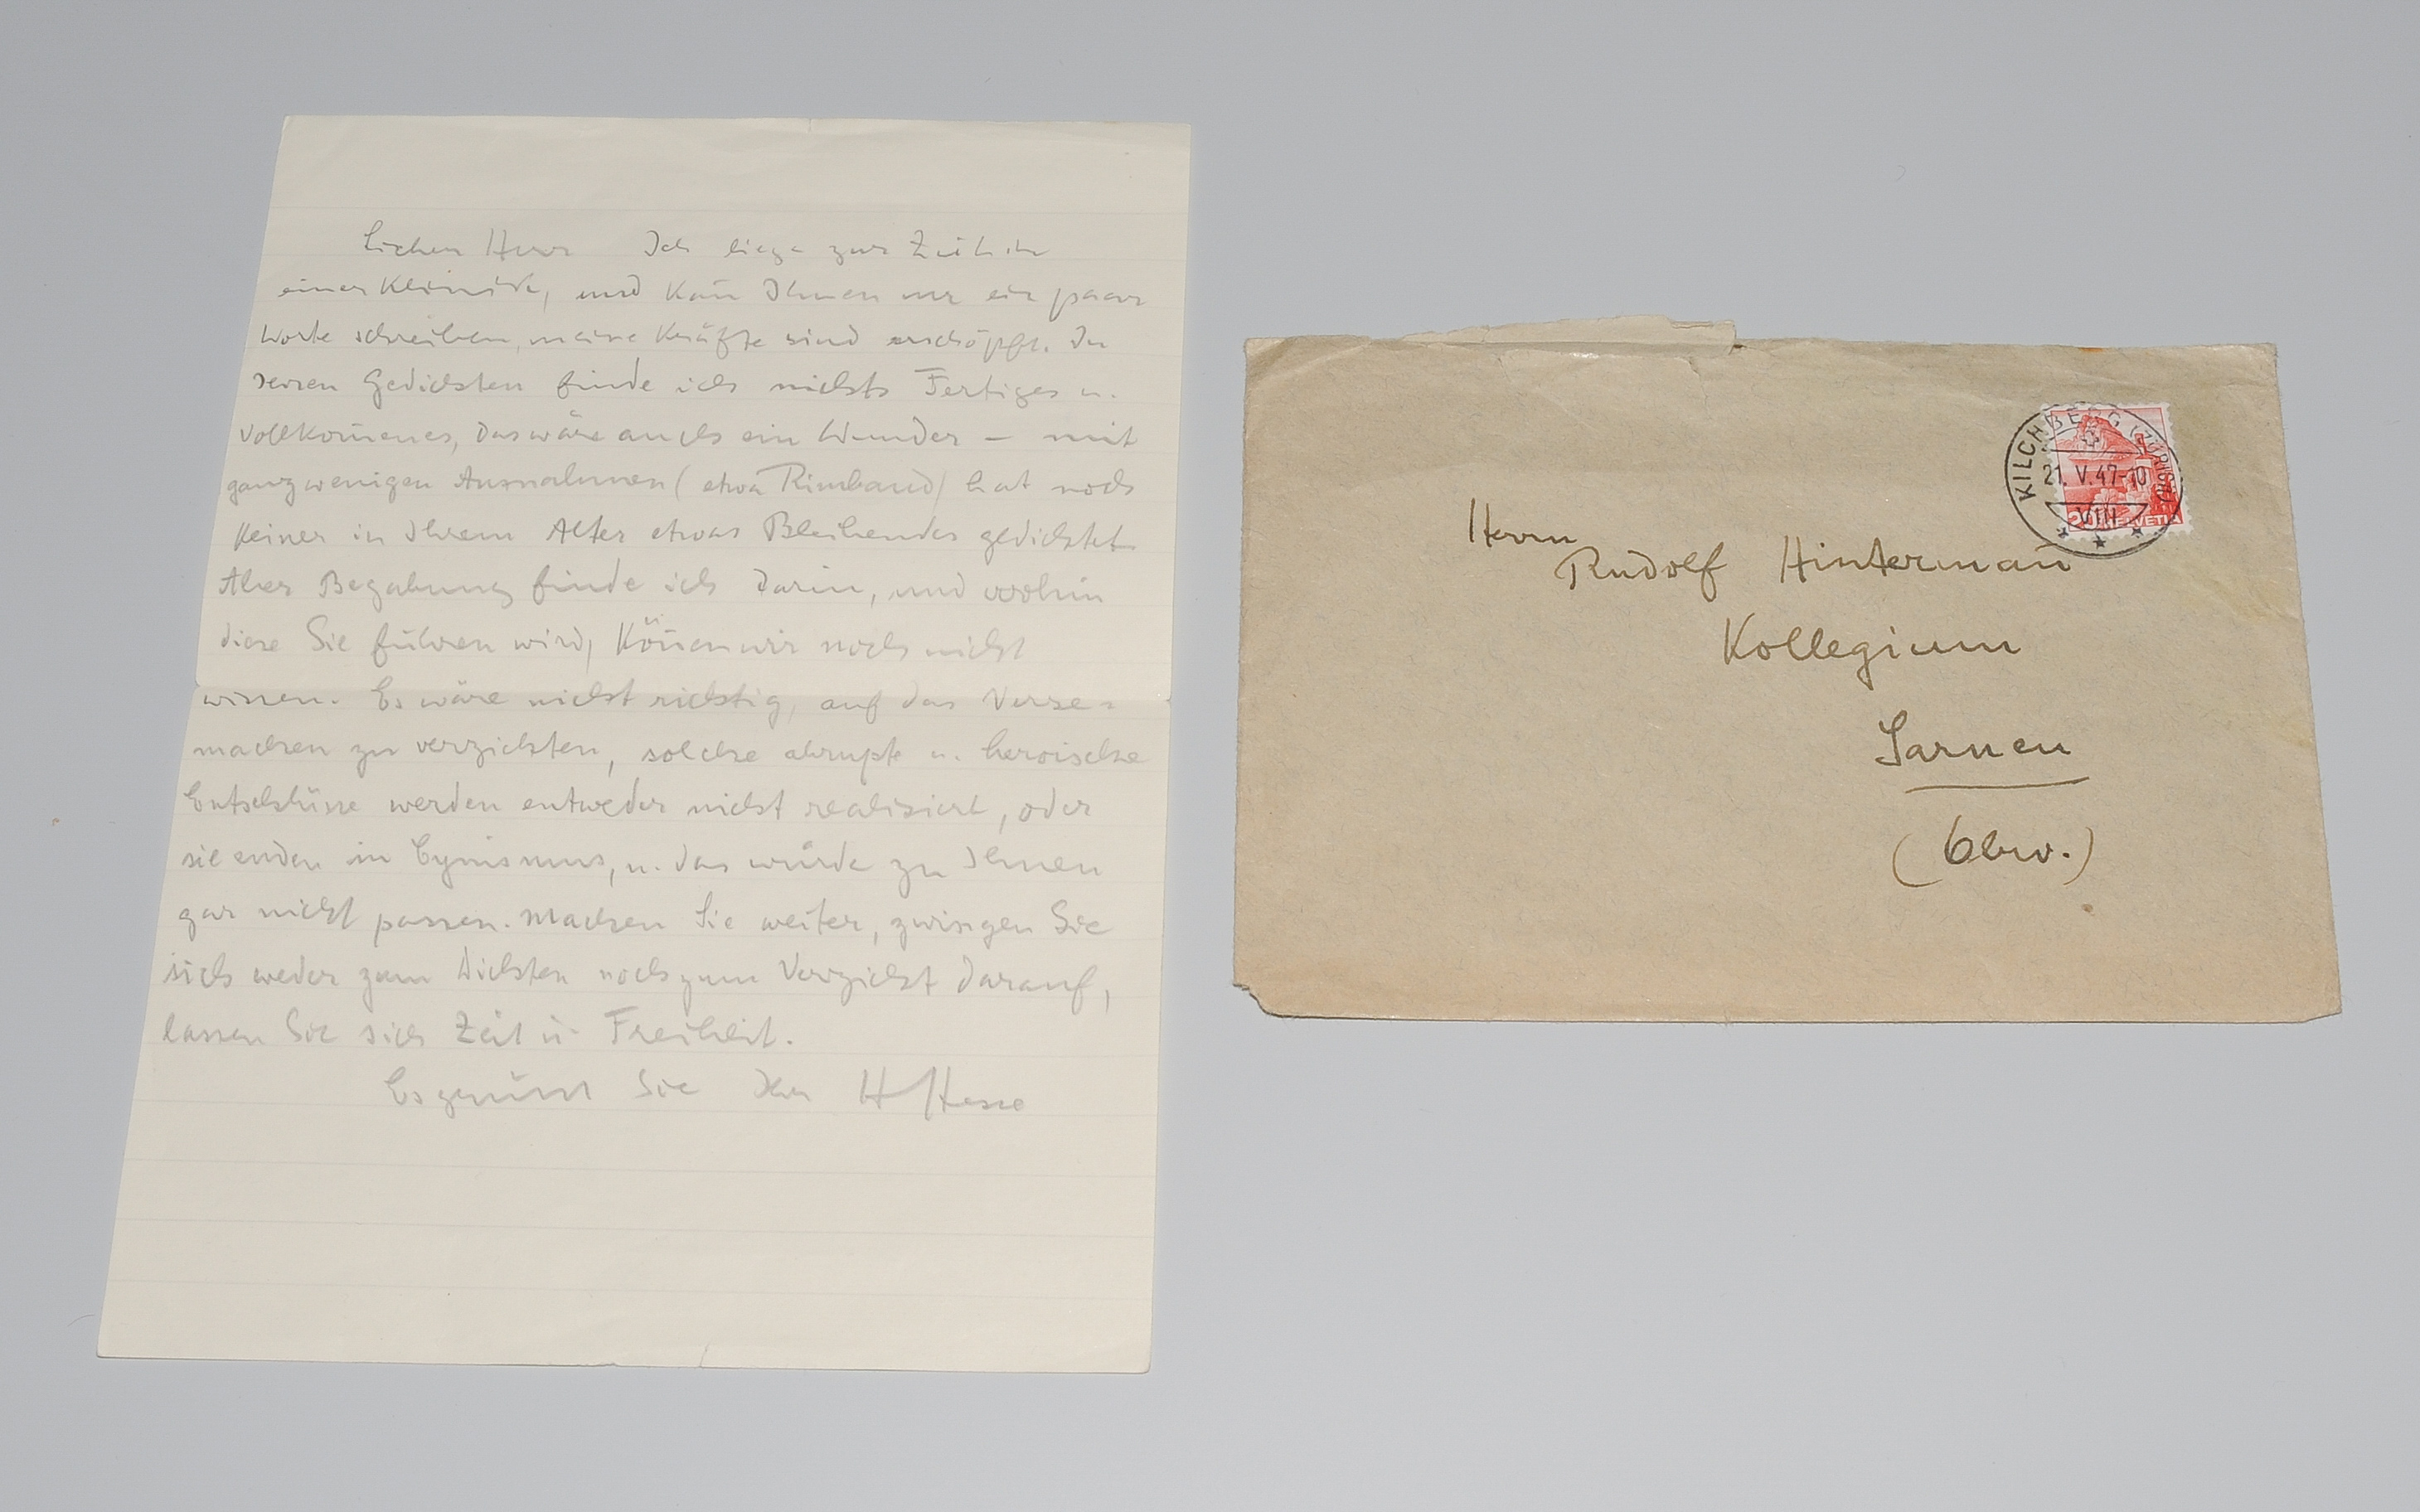 Lieber Herr Ich liege zur Zeit in
einer Klinik, und kan̄ Ihnen nur ein paar
Worte schreiben, meine Kräfte sind erschöpft. In
Gedichten finde ich nichts Fertiges u.
Vollkom̄enes, das wäre auch ein Wunder – mit
ganz wenigen Ausnahmen (etwa Rimbaud) hat noch
keiner in Ihrem Alter etwas Bleibendes gedichtet.
Aber Begabung finde ich darin, und wohin
diese Sie führen wird, kön̄en wir noch nicht
wissen. Es wäre nicht richtig, auf das Verse-
machen zu verzichten, solche abrupte u. heroische
Entschlüsse werden entweder nicht realisiert, oder
sie enden in Cynismus, u. das würde zu Ihnen
gar nicht passen. Machen Sie weiter, zwingen Sie
sich weder zum Dichten noch zum Verzicht darauf,
lassen Sie sich Zeit u. Freiheit.
Es grüsst Sie Ihr H Hesse
KILCHBERG (ZÜRICH)
21. V. 47-10
VIII
20 HELVETIA
Herrn
Rudolf Hinterman̄
Kollegium
Sarnen
(Obw.)